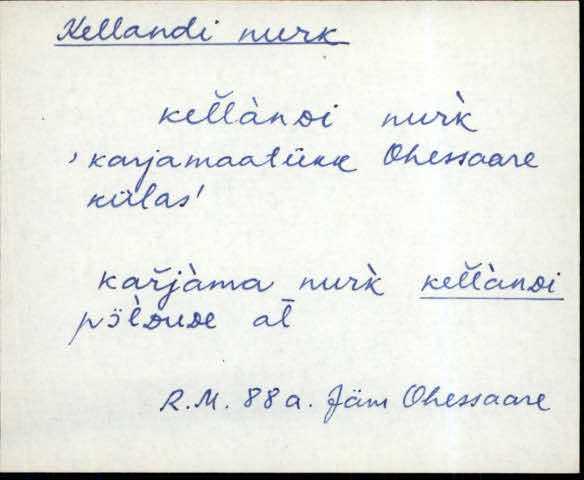 Kellandi nurk
kel̆làndi nur̀k
'karjamaatükk Ohessaare
külas'
kar̆jàma nur̀k kel̆làndi
pöl̀dude al̄
R.M. 88 a. Jäm Ohessaare